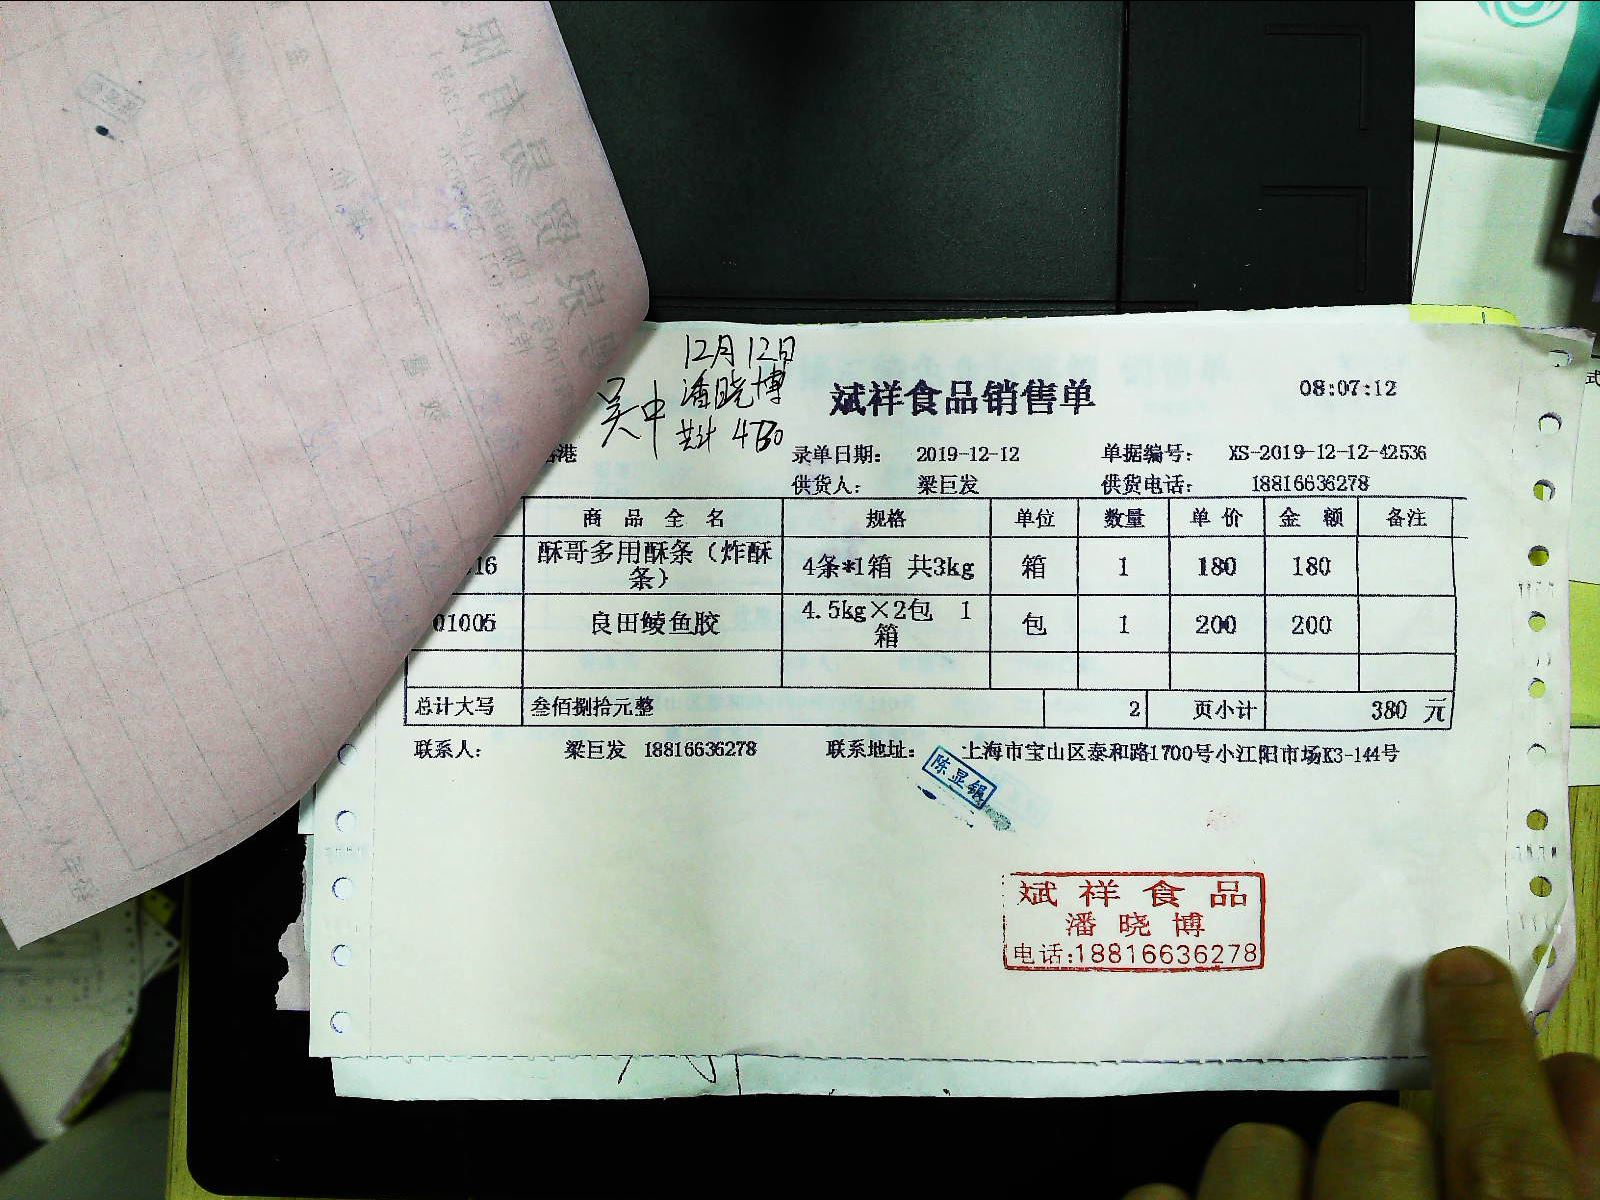 12月12日
潘晓博
吴中
共计
斌祥食品销售单
08:07:12
港 录单日期: 2019-12-12 单据编号: XS-2019-12-12-42536
供货人: 梁巨发 供货电话: 18816636278
商品全名 规格 单位 数量 单价 金额 备注
16 酥哥多用酥条（炸酥条） 4条*1箱 共3kg 箱 1 180 180
01005 良田鲮鱼胶 4.5kg×2包 1箱 包 1 200 200
总计大写 叁佰捌拾元整 2 页小计 380 元
联系人: 梁巨发 18816636278 联系地址: 上海市宝山区泰和路1700号小江阳市场K3-144号
陈显银
斌祥食品
潘晓博
电话:18816636278